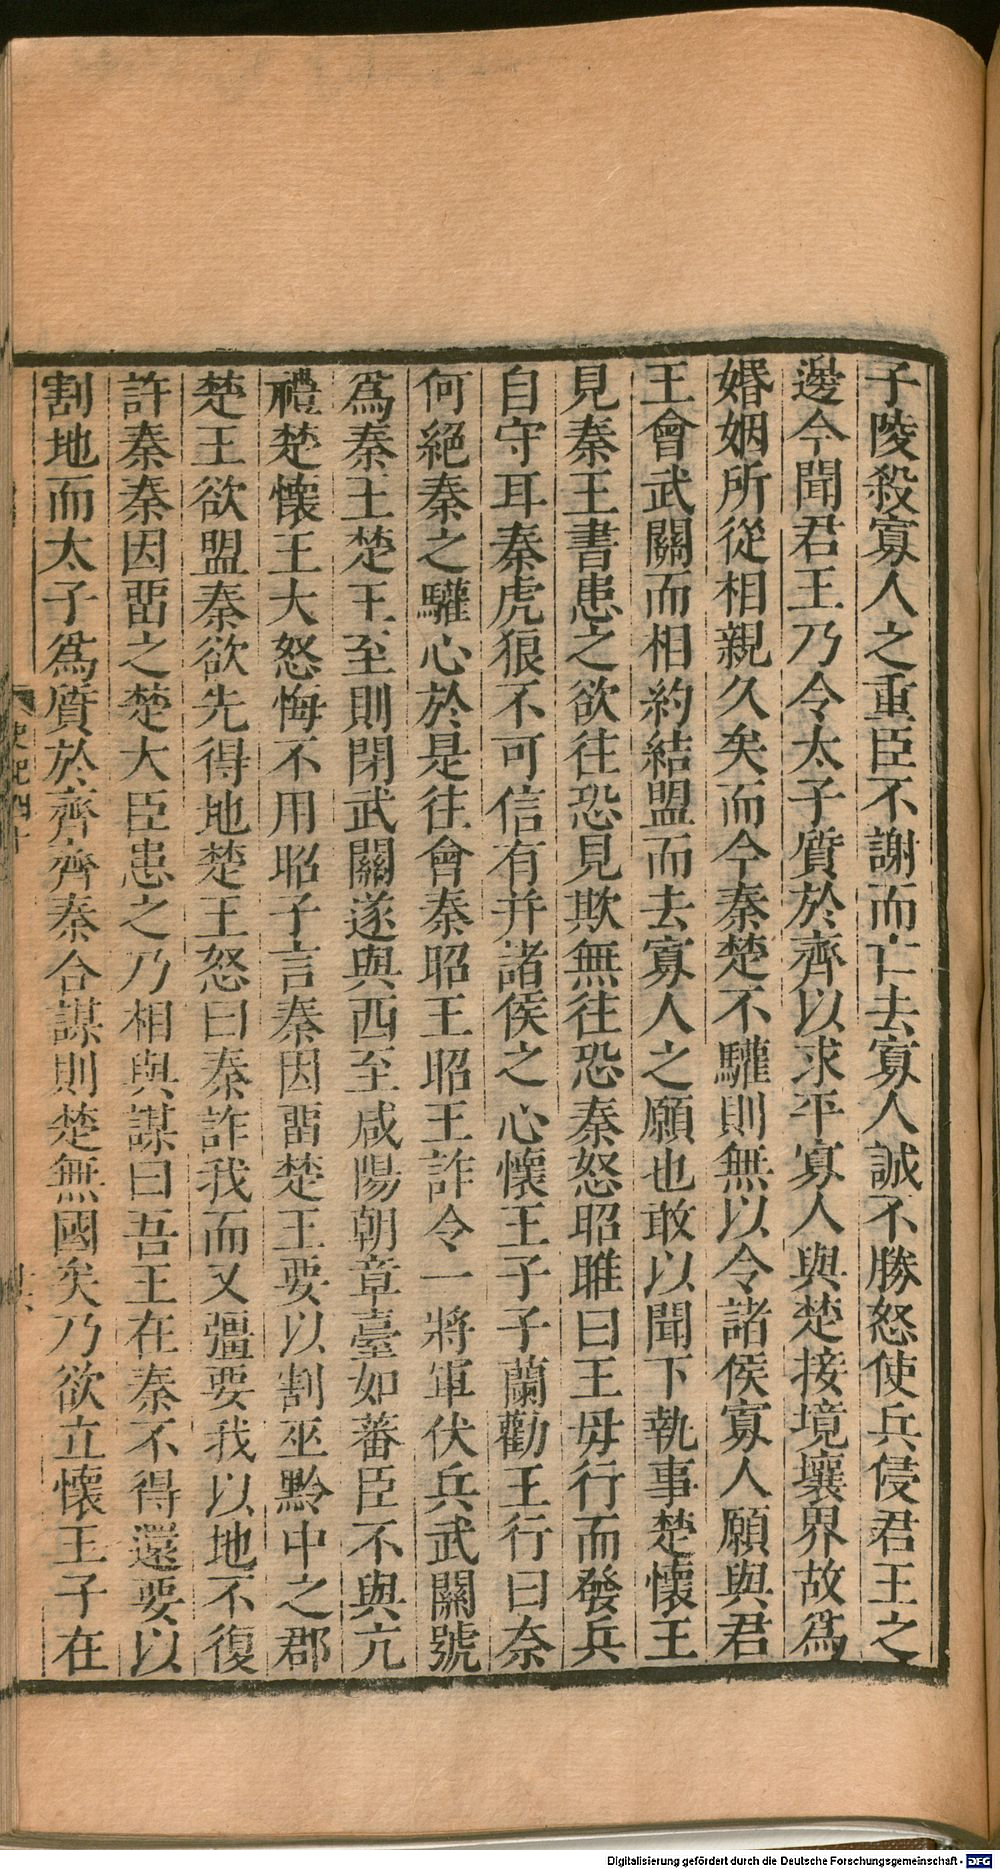 子陵殺寡人之重臣不謝而亡去寡人誠不勝怒使兵侵君王之
邊今聞君王乃令太子質於齊以求平寡人與楚接境壤界故爲
婚姻所從相親久矣而今秦楚不驩則無以令諸侯寡人願與君
王會武關而相約結盟而去寡人之願也敢以聞下執事楚懷王
見秦王書患之欲往恐見欺無往恐秦怒昭雎曰王毋行而發兵
自守耳秦虎狼不可信有并諸侯之心懷王子子蘭勸王行曰奈
何絕秦之驩心於是往會秦昭王昭王詐令一將軍伏兵武關號
爲秦王楚王至則閉武關遂與西至咸陽朝章臺如蕃臣不與亢
禮楚懷王大怒悔不用昭子言秦因畱楚王要以割巫黔中之郡
楚王欲盟秦欲先得地楚王怒曰秦詐我而又彊要我以地不復
許秦秦因畱之楚大臣患之乃相與謀曰吾王在秦不得還要以
割地而太子爲質於齊齊秦合謀則楚無國矣乃欲立懷王子在
史記四十
Digitalisierung gefördert durch die Deutsche Forschungsgemeinschaft - DFG